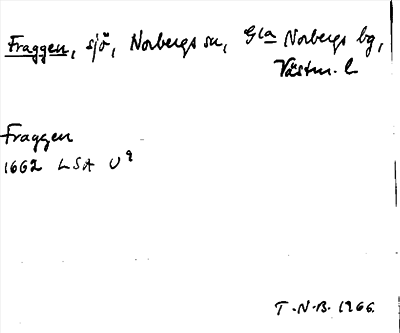 Fraggen, sjö, Norbergs sn, Gla Norbergs bg,
Västm. l
Fraggen
1662 LSA U9
T.N.B. 1966.